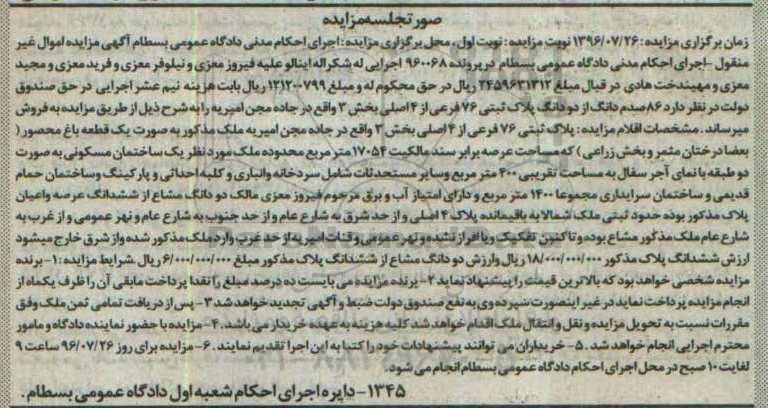 صورتجلسه مزایده
زمان برگزاری مزایده: ۱۳۹۶/۰۷/۲۶ نوبت مزایده: نوبت اول، محل برگزاری مزایده: اجرای احکام مدنی دادگاه عمومی بسطام آگهی مزایده اموال غیر
منقول -اجرای احکام مدنی دادگاه عمومی بسطام در پرونده ۹۶۰۰۶۸ اجرایی له شکراله اینالو علیه فیروز معزی و نیلوفر معزی و فرید معزی و مجید
معزی و مهیندخت هادی در قبال مبلغ ۲۴۵۹۶۳۱۳۱۲ ریال در حق محکوم له و مبلغ ۱۲۱۲۰۰۷۹۹ ریال بابت هزینه نیم عشر اجرایی در حق صندوق
دولت در نظر دارد ۸۶ صدم دانگ از دو دانگ پلاک ثبتی ۷۶ فرعی از ۴ اصلی بخش ۳ واقع در جاده مجن امیریه را به شرح ذیل از طریق مزایده به فروش
میرساند. مشخصات اقلام مزایده: پلاک ثبتی ۷۶ فرعی از ۴ اصلی بخش ۳ واقع در جاده مجن امیریه ملک مذکور به صورت یک قطعه باغ محصور (
بعضا درختان مثمر و بخش زراعی) که مساحت عرصه برابر سند مالکیت ۱۷۰۵۴ متر مربع محدوده ملک مورد نظر یک ساختمان مسکونی به صورت
دو طبقه با نمای آجر سفال به مساحت تقریبی ۴۰۰ متر مربع وسایر مستحدثات شامل سردخانه وانباری و کلبه احداثی و پارکینگ وساختمان حمام
قدیمی و ساختمان سرایداری مجموعا ۱۴۰۰ متر مربع و دارای امتیاز آب و برق مرحوم فیروز معزی مالک دو دانگ مشاع از ششدانگ عرصه واعیان
پلاک مذکور بوده حدود ثبتی ملک شمالا به باقیمانده پلاک ۴ اصلی و از حد شرق به شارع عام و از حد جنوب به شارع عام و نهر عمومی و از غرب به
شارع عام ملک مذکور مشاع بوده و تا کنون تفکیک ویا افراز نشده و نهر عمومی وقنات امیریه از حد غرب وارد ملک مذکور شده واز شرق خارج میشود
ارزش ششدانگ پلاک مذکور ۱۸/۰۰۰/۰۰۰/۰۰۰ ریال وارزش دو دانگ مشاع از ششدانگ پلاک مذکور مبلغ ۶/۰۰۰/۰۰۰/۰۰۰ ریال .شرایط مزایده: ۱- برنده
مزایده شخصی خواهد بود که بالاترین قیمت را پیشنهاد نماید ۲- برنده مزایده می بایست ده درصد مبلغ را نقدا پرداخت مابقی آن را ظرف یکماه از
انجام مزایده پرداخت نماید در غیر اینصورت سپرده وی به نفع صندوق دولت ضبط و آگهی تجدید خواهد شد ۳- پس از دریافت تمامی ثمن ملک وفق
مقررات نسبت به تحویل مزایده و نقل و انتقال ملک اقدام خواهد شد کلیه هزینه به عهده خریدار می باشد. ۴- مزایده با حضور نماینده دادگاه و مامور
محترم اجرایی انجام خواهد شد. ۵- خریداران می توانند پیشنهادات خود را کتبا به این اجرا تقدیم نمایند. ۶- مزایده برای روز ۹۶/۰۷/۲۶ ساعت ۹
لغایت ۱۰ صبح در محل اجرای احکام دادگاه عمومی بسطام انجام می شود.
۱۳۴۵- دایره اجرای احکام شعبه اول دادگاه عمومی بسطام.